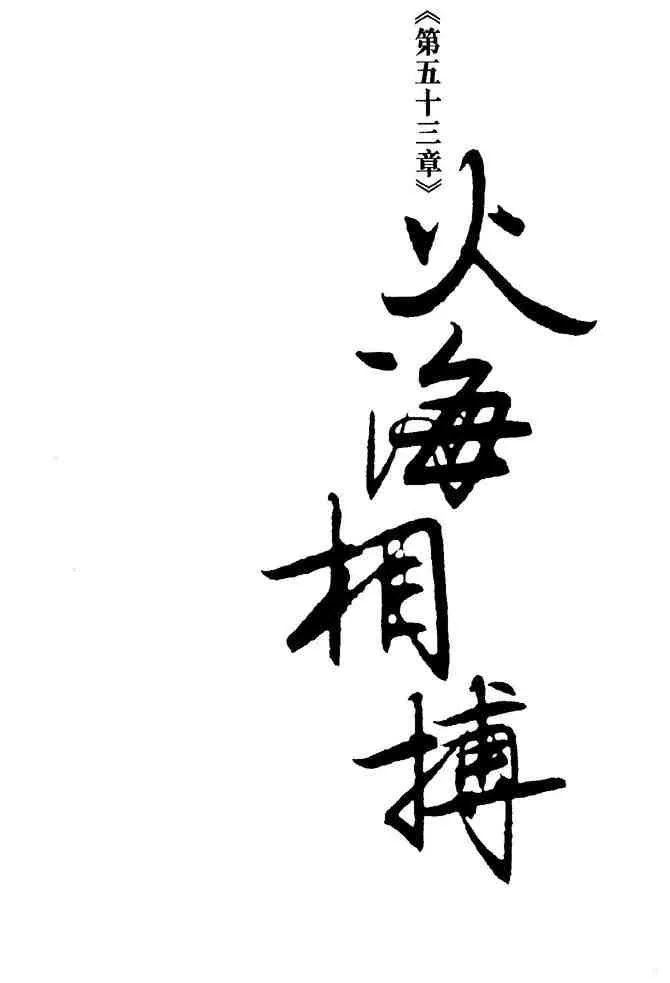 《第五十三章》
火海相搏